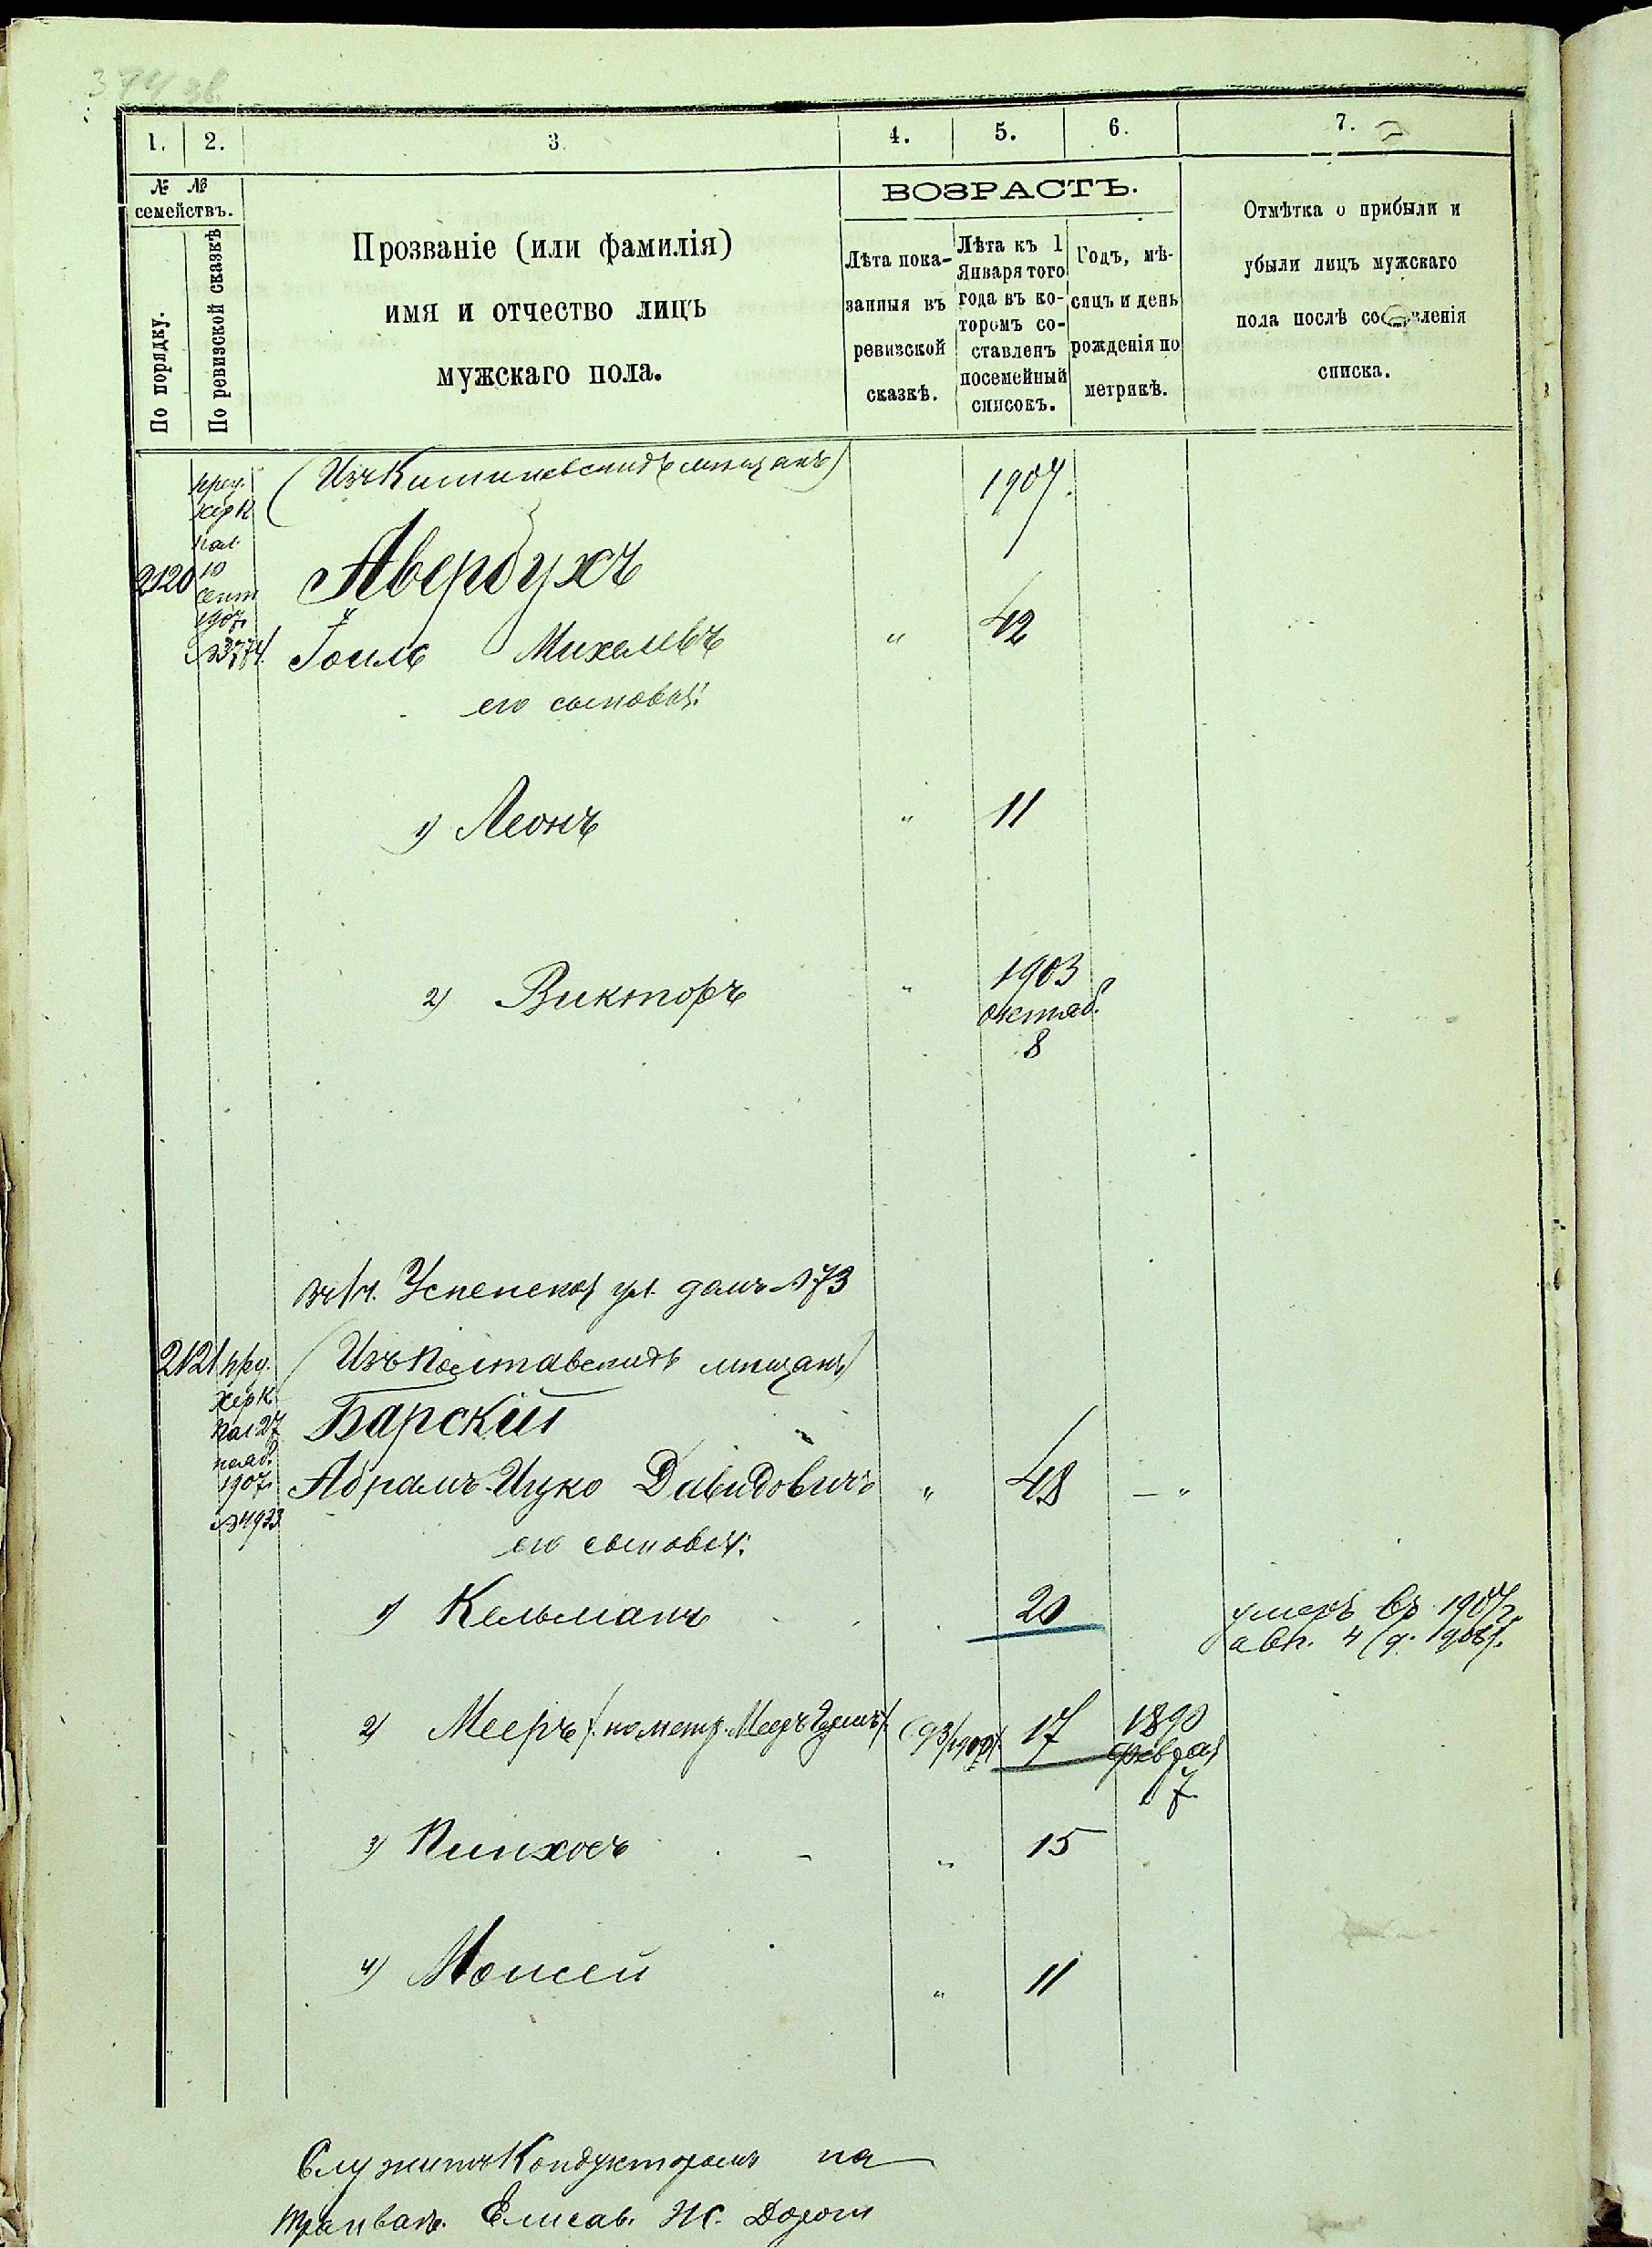 374 об.
1. 2. 3. 4. 5. 6. 7.
№ №
семействъ.
По порядку.
По ревизской сказкѣ
Прозваніе (или фамилія)
имя и отчество лицъ
мужскаго пола.
ВОЗРАСТЪ.
Лѣта пока-
занныя въ
ревизской
сказкѣ.
Лѣта къ 1
Января того
года въ ко-
торомъ со-
ставленъ
посемейный
списокъ.
Годъ, мѣ-
сяцъ и день
рожденія по
метрикѣ.
Отмѣтка о прибыли и
убыли лицъ мужскаго
пола послѣ составленія
списка.
2120
пред.
Херк
пал.
10
сент.
1907
№3774.
(Изъ Кишиневскихъ мѣщанъ)
1907.
Авербухъ
Іоиль Михелевъ " 42
его сыновья:
1) Леонъ " 11
2) Викторъ "
1903
октяб.
8
Успенская ул. домъ №73
2121
пред.
Херк
пал 27
нояб.
1907
№4933
(Изъ Полтавскихъ мѣщанъ)
Барскій
Абрамъ-Ицко Давидовичъ " 48 — "
его сыновья:
1) Кельманъ 20
умеръ въ 1907г.
2) Мееръ (по метр. Мееръ 17
1890
февраля
7
3) Пинхосъ " 15
4) Моисей " 11
Служитъ Кондукторомъ на
трамваѣ. Елисав. Ж. Дороги